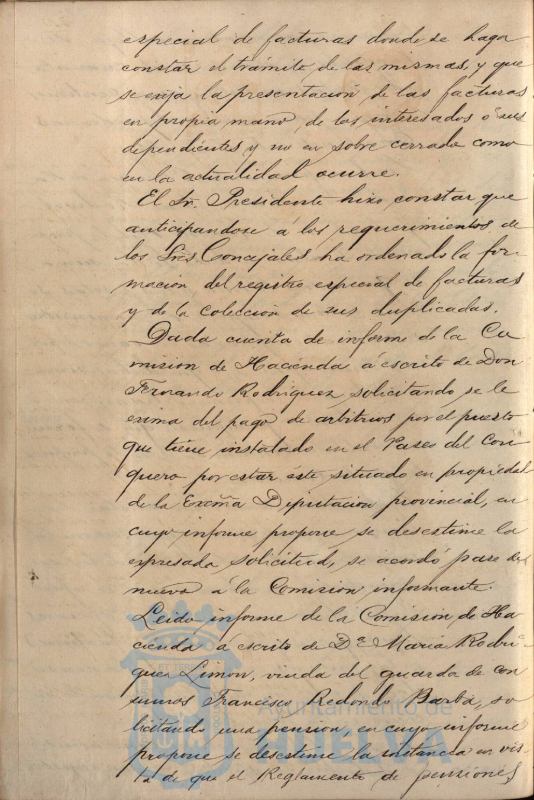 especial de facturas donde se haga
constar el trámite de las mismas, y que
se exija la presentación de las facturas
en propia mano de los interesados o sus
dependientes y no en sobre cerrado como
en la actualidad ocurre.
El Sr. Presidente hizo constar que
anticipandose á los requerimientos de
los Sres Concejales ha ordenado la for
macion del registro especial de facturas
y de la coleccion de sus duplicadas.
Dada cuenta de informe de la Co
mision de Hacienda á escrito de Don
Fernando Rodriguez solicitando se le
exima del pago de arbitrios por el puesto
que tiene instalado en el Paseo del Con
quero por estar éste situado en propiedad
de la Excma Diputacion provincial, en
cuyo informe propone se desestime la
expresada solicitud, se acordó pase de
nuevo á la Comision informante.
Leido informe de la Comision de Ha
cienda á escrito de Dª Maria Rodri
guez Limon, viuda del guarda de con
sumos Francisco Redondo Barba, so
licitando una pension, en cuyo informe
propone se desestime la instancia en vis
ta de que el Reglamento de pensiones
Ayuntamiento de
HUELVA